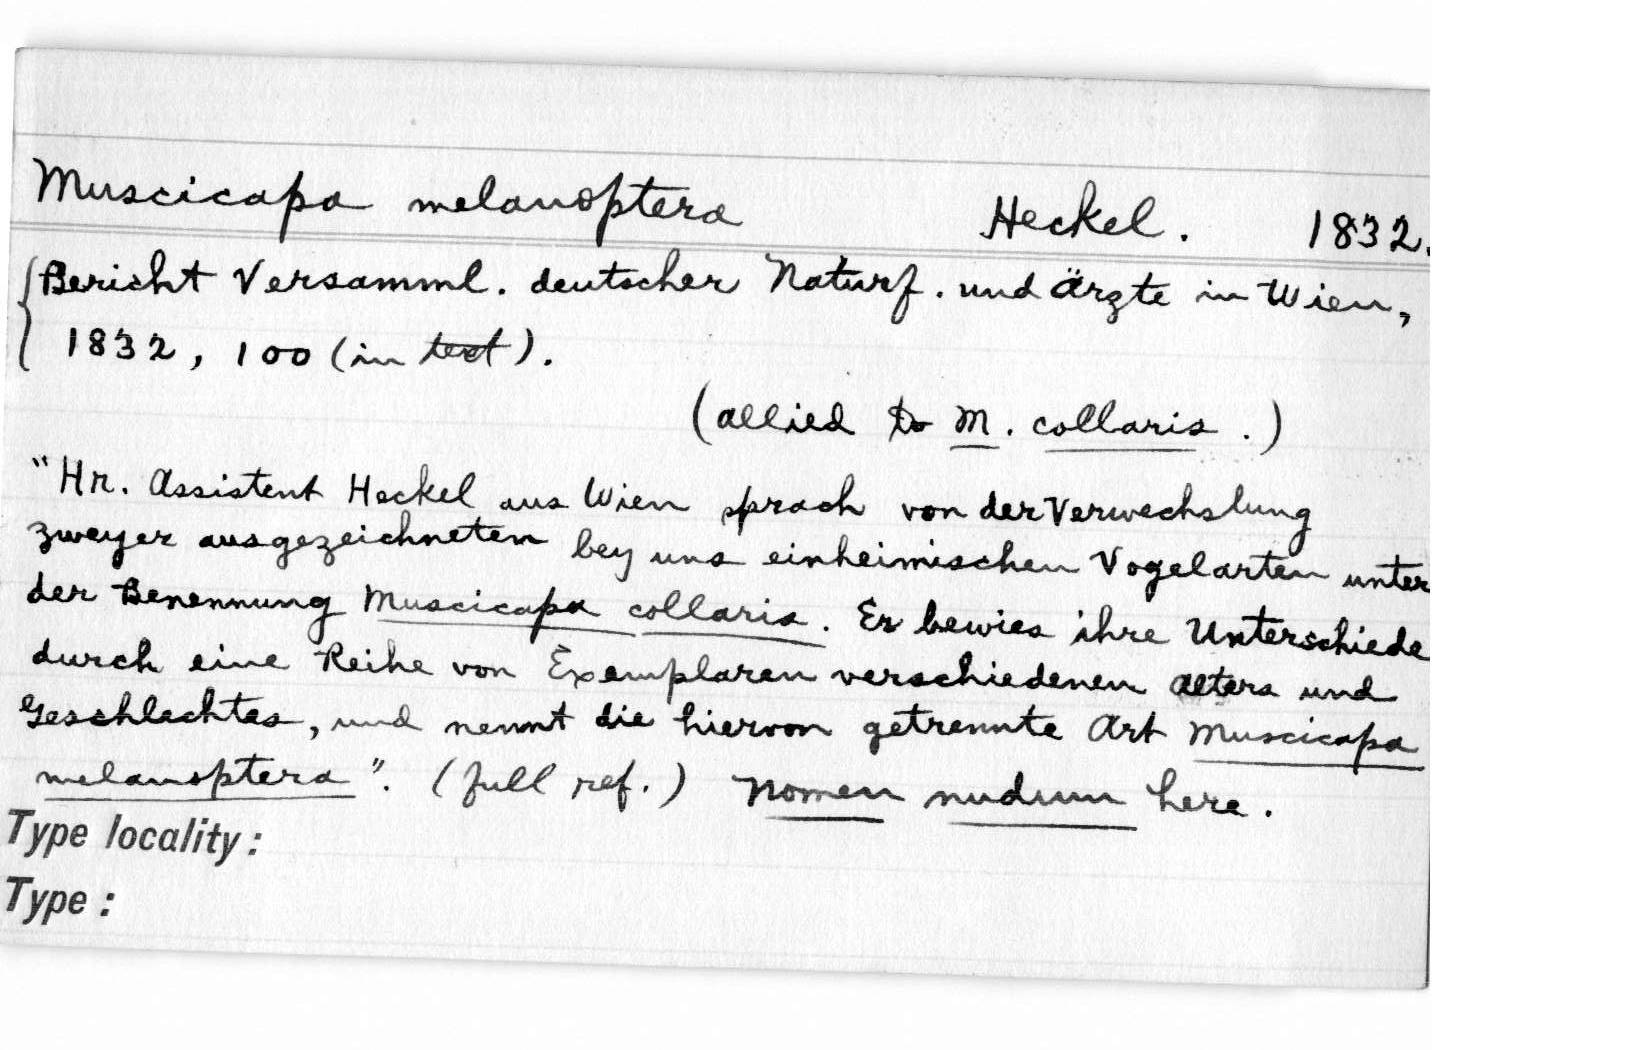 Muscicapa melanoptera Heckel. 1832.
Bericht Versamml. deutscher Naturf. und Ärzte in Wien,
1832, 100 (in text).
(allied to M. collaris.)
"Hr. Assistent Heckel aus Wien sprach von der Verwechslung
zweyer ausgezeichneten bey uns einheimischen Vogelarten unter
der Benennung Muscicapa collaris. Er bewies ihre Unterschiede
durch eine Reihe von Exemplaren verschiedenen alters und
Geschlechtes, und nennt die hiervon getrennte Art Muscicapa
melanoptera". (full ref.) Nomen nudum here.
Type locality:
Type: